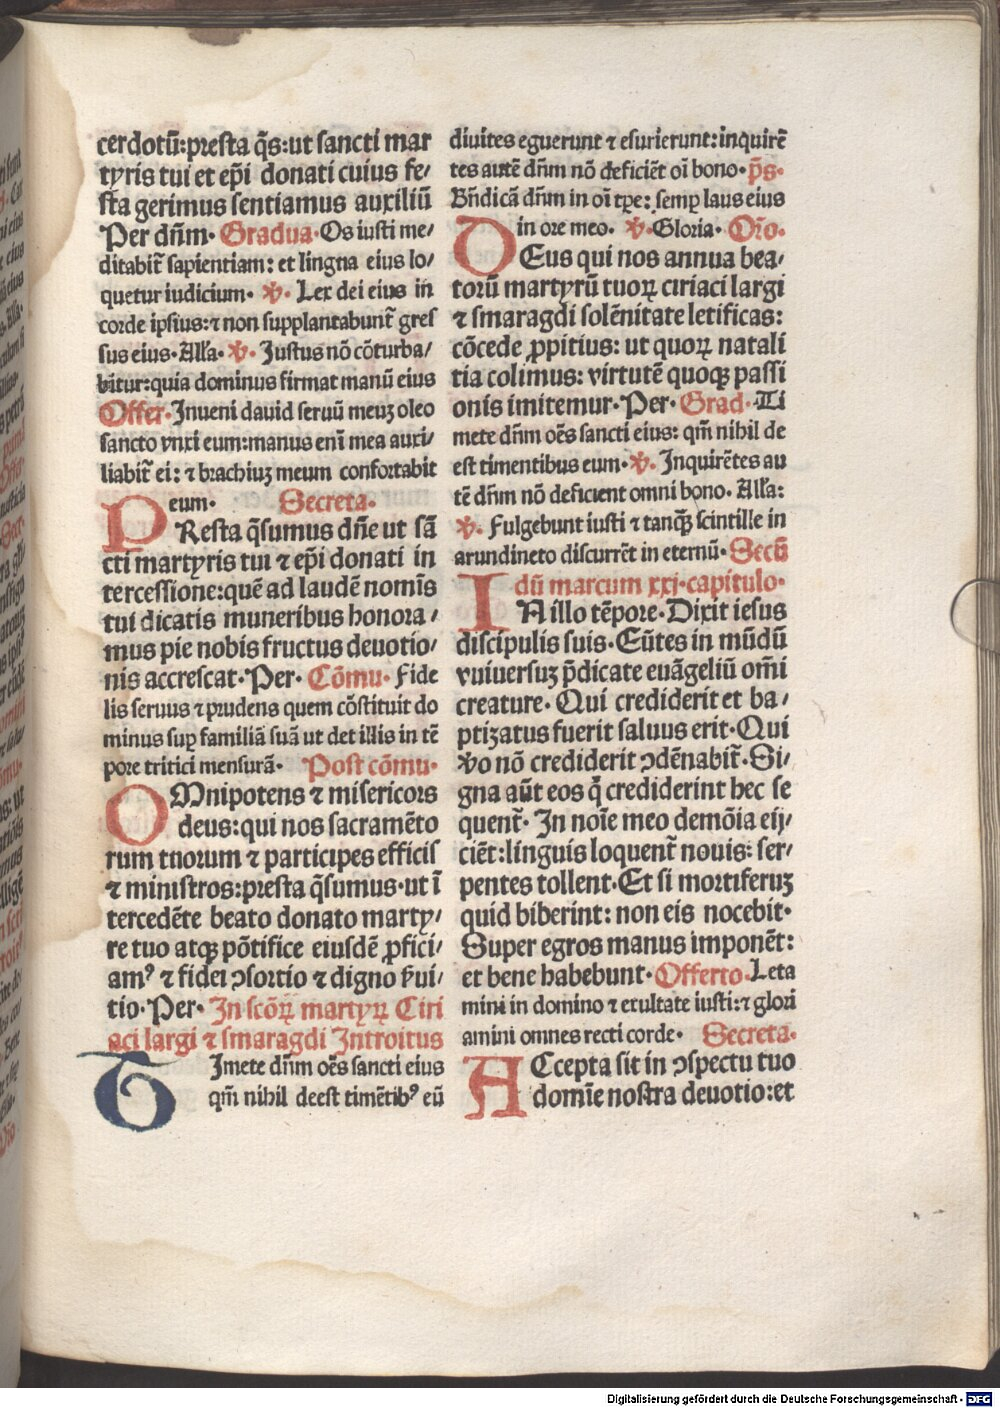 cerdotũ:presta q̃s:ut sancti mar
tyris tui et ep̃i donati cuius fe/
sta gerimus sentiamus auxiliũ
Per dñm· Gradua·Os iusti me/
ditabit̃ sapientiam: et lingua eius lo/
quetur iudicium· ℣· Lex dei eius in
corde ipsius:⁊ non supplantabunt̃ gres
sus eius·All̃a· ℣· Justus nõ cõturba/
bitur:quia dominus firmat manũ eius
Offer·Jnueni dauid seruũ meuʒ oleo
sancto vnxi eum:manus enĩ mea auxi/
liabit̃ ei: ⁊ brachiuʒ meum confortabit
eum· Secreta·
PResta q̃sumus dñe ut sã
cti martyris tui ⁊ ep̃i donati in
tercessione:quẽ ad laudẽ nomĩs
tui dicatis muneribus honora/
mus pie nobis fructus deuotio/
nis accrescat·Per· Cõmu· Fide
lis seruus ⁊ prudens quem cõstituit do
minus suꝑ familiã suã ut det illis in tẽ
pore tritici mensurã· Post cõmu·
OMnipotens ⁊ misericors
deus:qui nos sacramẽto
rum tuorum ⁊ participes efficis
⁊ ministros:presta q̃sumus·ut ĩ
tercedẽte beato donato marty/
re tuo atqꝫ põtifice eiusdẽ ꝓfici/
amꝰ ⁊ fidei ꝯsortio ⁊ digno s̃ui/
tio·Per· Jn scõꝝ martyꝝ Ciri
aci largi ⁊ smaragdi Jntroitus
TJmete dñm oẽs sancti eius
qm̃ nihil deest timẽtibꝰ eũ
diuites eguerunt ⁊ esurierunt:inquirẽ
tes autẽ dñm nõ deficiẽt oĩ bono· p̃s·
Bñdicã dñm in oĩ tꝑe: semꝑ laus eius
in ore meo· ℣·Gloria· Or̃o·
DEus qui nos annua bea/
torũ martyrũ tuoꝝ ciriaci largi
⁊ smaragdi solẽnitate letificas:
cõcede ꝓpitius: ut quoꝝ natali
tia colimus: virtutẽ quoqꝫ passi
onis imitemur·Per· Grad·Ti
mete dñm oẽs sancti eius: qm̃ nihil de
est timentibus eum·℣· Jnquirẽtes au
tẽ dñm nõ deficient omni bono· All̃a:
℣· Fulgebunt iusti ⁊ tanqꝫ̃ scintille in
arundineto discurrẽt in eternũ·Secũ
dũ marcum xxj·capitulo·
INillo tẽpore·Dixit iesus
discipulis suis·Eũtes in mũdũ
vniuersuʒ p̃dicate euãgeliũ om̃i
creature· Qui crediderit et ba/
ptiʒatus fuerit saluus erit·Qui
vo nõ crediderit ꝯdẽnabit̃·Si/
gna aũt eos q̃ crediderint hec se
quent̃· Jn noĩe meo demõia eij/
ciẽt:linguis loquent̃ nouis: ser/
pentes tollent·Et si mortiferuʒ
quid biberint: non eis nocebit·
Super egros manus imponẽt:
et bene habebunt·Offerto·Leta
mini in domino ⁊ exultate iusti:⁊ glori
amini omnes recti corde· Secreta·
ACcepta sit in ꝯspectu tuo
domĩe nostra deuotio:et
Digitalisierung gefördert durch die Deutsche Forschungsgemeinschaft - DFG